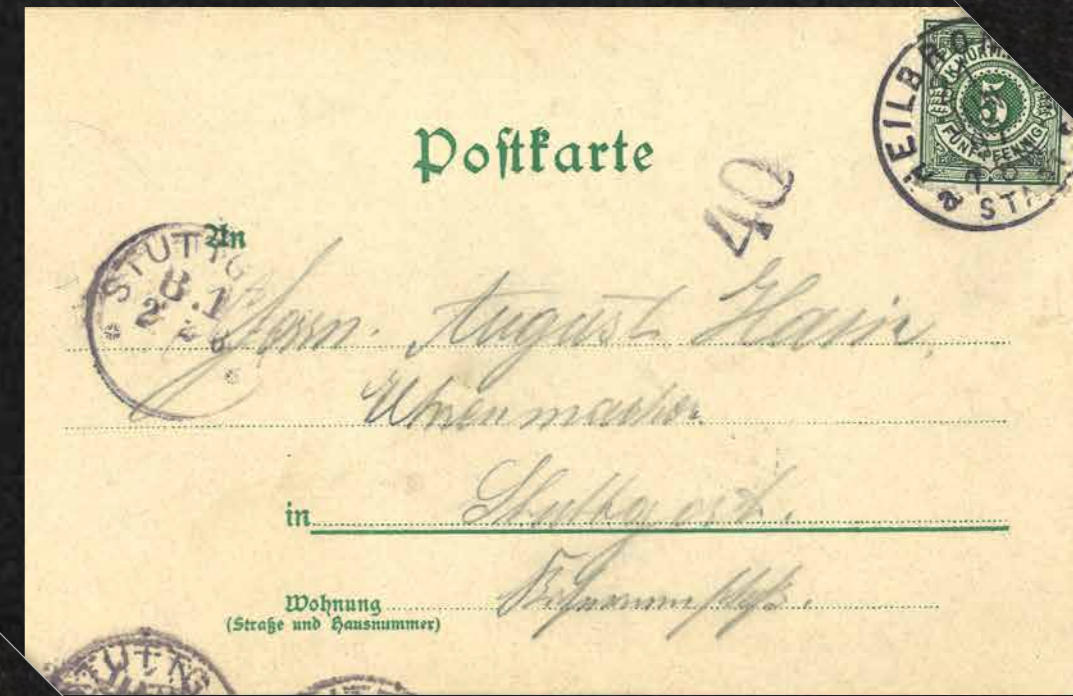 Postkarte
HEILBRO
K. WÜRT
5
FÜNF PFENNIG
STA
40
An
STUTTG
8.1
2
Herrn. August Hain,
Uhrenmacher
in Stuttgart.
Wohnung
(Straße und Hausnummer)